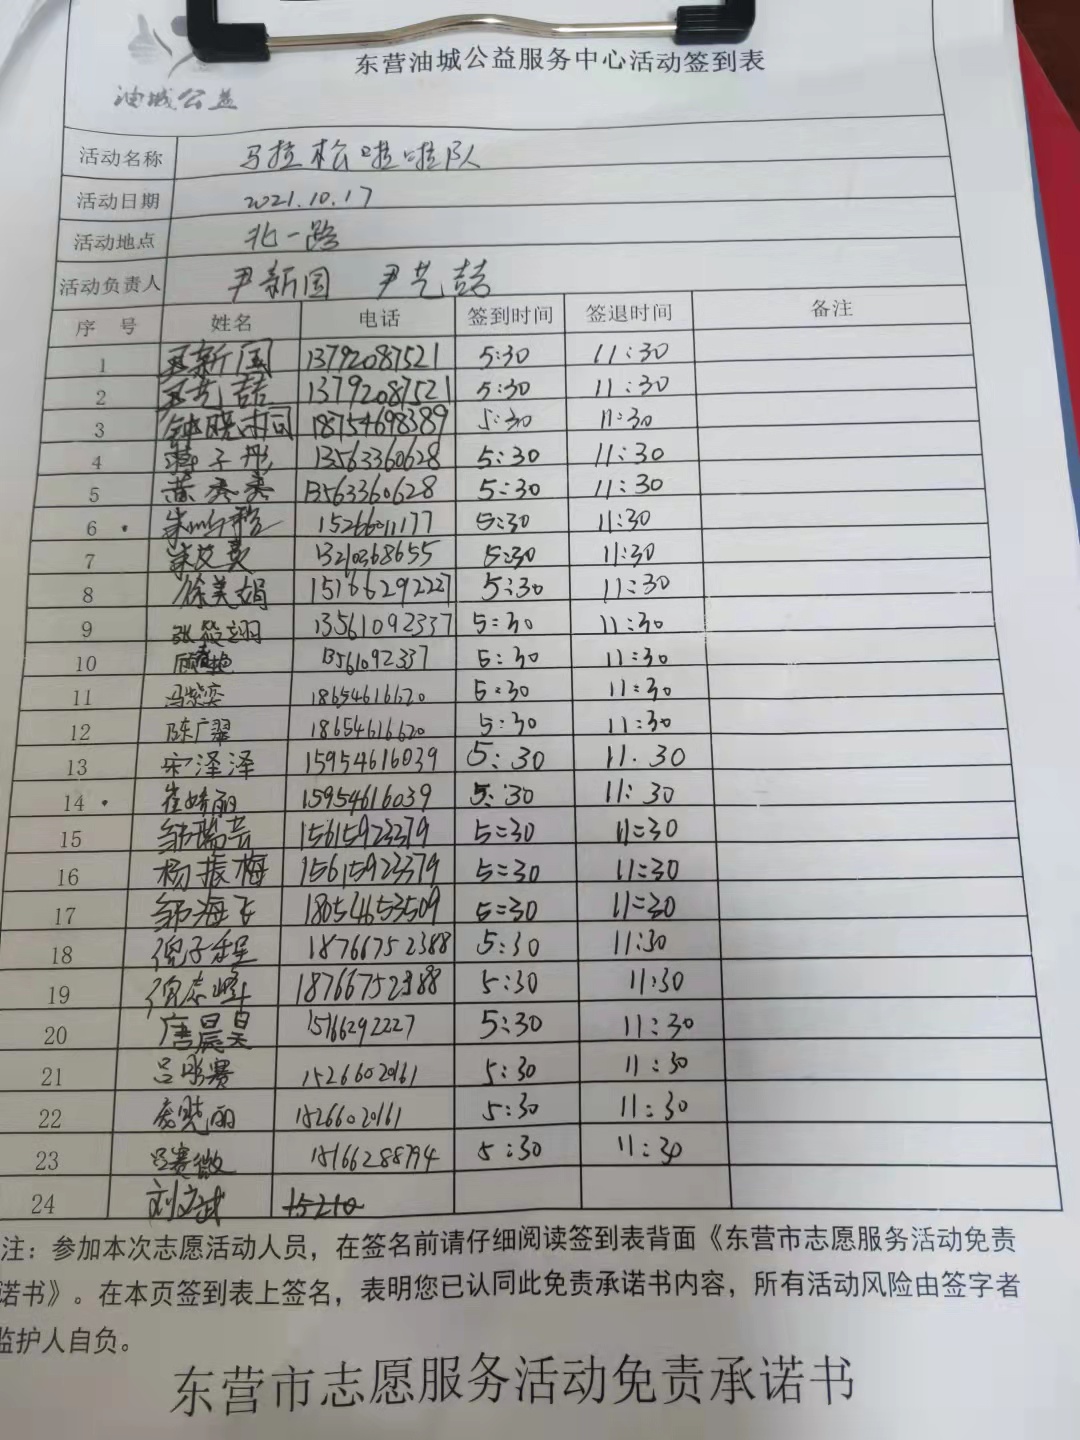 东营油城公益服务中心活动签到表
油城公益
活动名称 马拉松啦啦队
活动日期 2021.10.17
活动地点 北一路
活动负责人 尹新国 尹艺喆
序号 姓名 电话 签到时间 签退时间 备注
1 尹新国 13792087521 5:30 11:30
2 尹艺喆 13792087521 5:30 11:30
3 钟晓 18754698389 5:30 11:30
4 子彤 13563360628 5:30 11:30
5 13563360628 5:30 11:30
6 朱 15266011177 5:30 11:30
7 朱 13210368655 5:30 11:30
8 徐美娟 15166292227 5:30 11:30
9 张筱翊 13561092337 5:30 11:30
10 13561092337 5:30 11:30
11 冯紫奕 18654616620 5:30 11:30
12 陈广翠 18654616620 5:30 11:30
13 宋泽泽 15954616039 5:30 11.30
14 崔娇丽 15954616039 5:30 11:30
15 邹瑞芸 15615923379 5=30 11=30
16 杨振梅 15615923379 5=30 11=30
17 邹海飞 18054653509 5=30 11=30
18 倪子程 18766752388 5:30 11:30
19 倪志峰 18766752388 5:30 11:30
20 唐晨昊 15166292227 5:30 11:30
21 吕彤赛 15266020161 5:30 11:30
22 丽 15266020161 5:30 11:30
23 吕赛微 15166288794 5:30 11:30
24 刘文武 15210
注：参加本次志愿活动人员，在签名前请仔细阅读签到表背面《东营市志愿服务活动免责
诺书》。在本页签到表上签名，表明您已认同此免责承诺书内容，所有活动风险由签字者
监护人自负。
东营市志愿服务活动免责承诺书